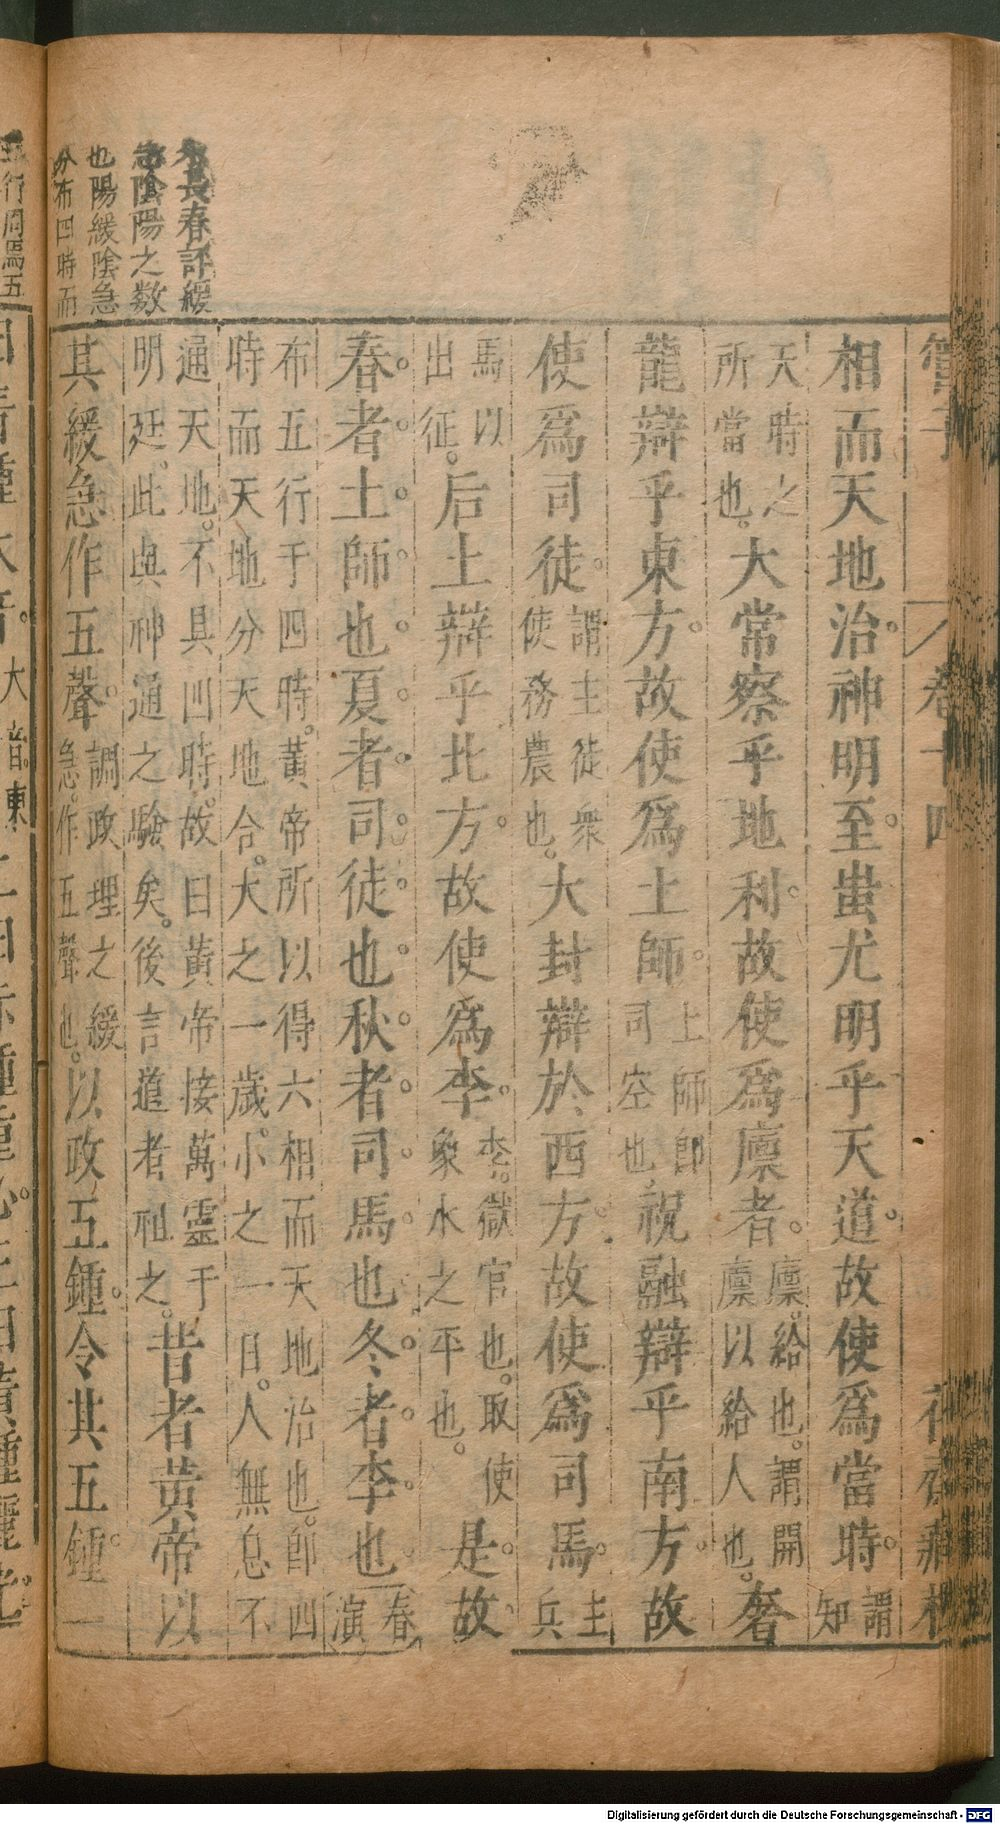 管子 卷十四 花齋藏板
相而天地治。神明至。蚩尤明乎天道。故使爲當時。謂知
天時之所當也。大常察乎地利。故使爲廩者。廩。給也。謂開廩以給人也。奢
龍辯乎東方。故使爲土師。土師即司空也。祝融辯乎南方。故
使爲司徒。謂主徒衆使務農也。大封辯於西方。故使爲司馬。主兵
馬以出征。后土辯乎北方。故使爲李。李。獄官也。取使象水之平也。是故
春者。土師也。夏者。司徒也。秋者。司馬也。冬者。李也。春演
布五行于四時。黃帝所以得六相而天地治也。即四
時而天地分天地合。大之一歲。小之一日。人無息不
通天地。不具四時。故曰黃帝接萬靈于
明廷。此與神通之驗矣。後言道者祖之。昔者黃帝以
其緩急作五聲。調政理之緩急。作五聲也。以政五鍾。令其五鍾。一
朱長春評緩
急陰陽之数
也陽緩陰急
分布四時而
五行周焉五
曰青鍾大音。大音東二曰赤鍾重心。三曰黃鍾灑光。
Digitalisierung gefördert durch die Deutsche Forschungsgemeinschaft - DFG